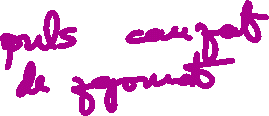 puls cauzat
de zgomot